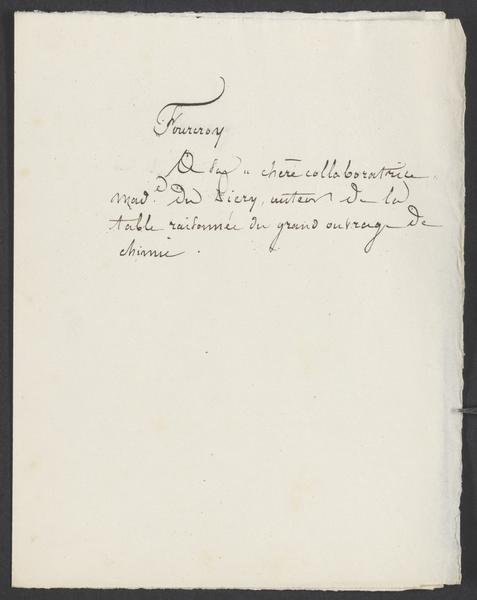 Fourcroy
A sa " chère collaboratrice
mad.e Du Piery, auteur de la
table raisonnée du grand ouvrage de
chimie .